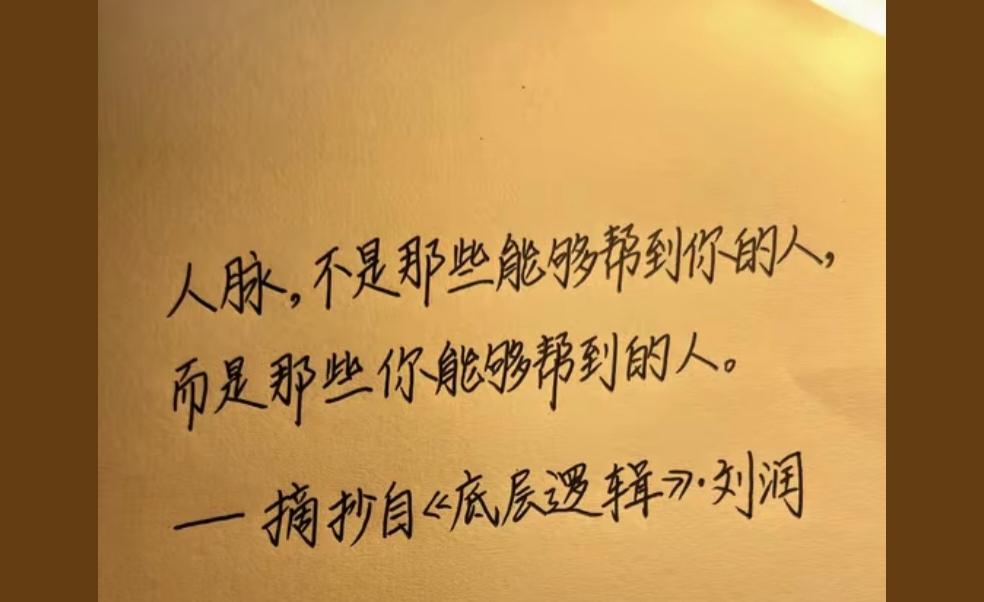 人脉,不是那些能够帮到你的人,
而是那些你能够帮到的人。
— 摘抄自《底层逻辑》·刘润